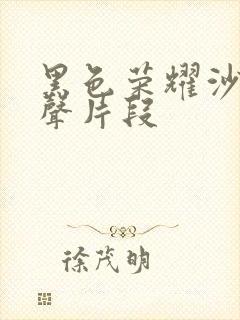 黑色荣耀沙
聲片段
徐茂明